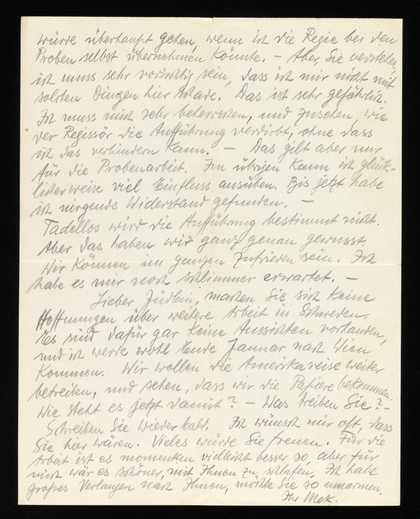 würde überhaupt gehen, wenn ich die Regie bei den
Proben selbst übernehmen könnte. – Aber, Sie verstehen,
ich muss sehr vorsichtig sein, dass ich mir nicht mit
solchen Dingen hier schade. Das ist sehr gefährlich.
Ich muss mich sehr beherrschen, und zusehen, wie
der Regissör die Aufführung verdirbt, ohne dass
ich das verhindern kann. – Das gibt aber nur
für die Probenarbeit. Im übrigen kann ich glück-
licherweise viel Einfluss ausüben. Bis jetzt habe
ich nirgends Widerstand gefunden. –
Tadellos wird die Aufführung bestimmt nicht.
Aber das haben wir ganz genau gewusst.
Wir können im ganzen zufrieden sein. Ich
habe es mir noch schlimmer erwartet. –
Lieber, machen Sie sich keine
Hoffnungen über weitere Arbeit in Schweden.
Es sind dafür gar keine Aussichten vorhanden,
und ich werde wohl Ende Januar nach Wien
kommen. Wir wollen die Amerikareise weiter
betreiben, und sehen, dass wir die Papiere bekommen.
Wie steht es jetzt damit? – Was treiben Sie? –
Schreiben Sie wieder bald. Ich wünsch mir oft, dass
Sie hier wären. Vieles würde Sie freuen. Für die
Arbeit ist es momentan vielleicht besser so, aber für
mich wär es schöner, mit Ihnen zu schlafen. Ich habe
grosses Verlangen nach Ihnen, möchte Sie so umarmen.
Ihr